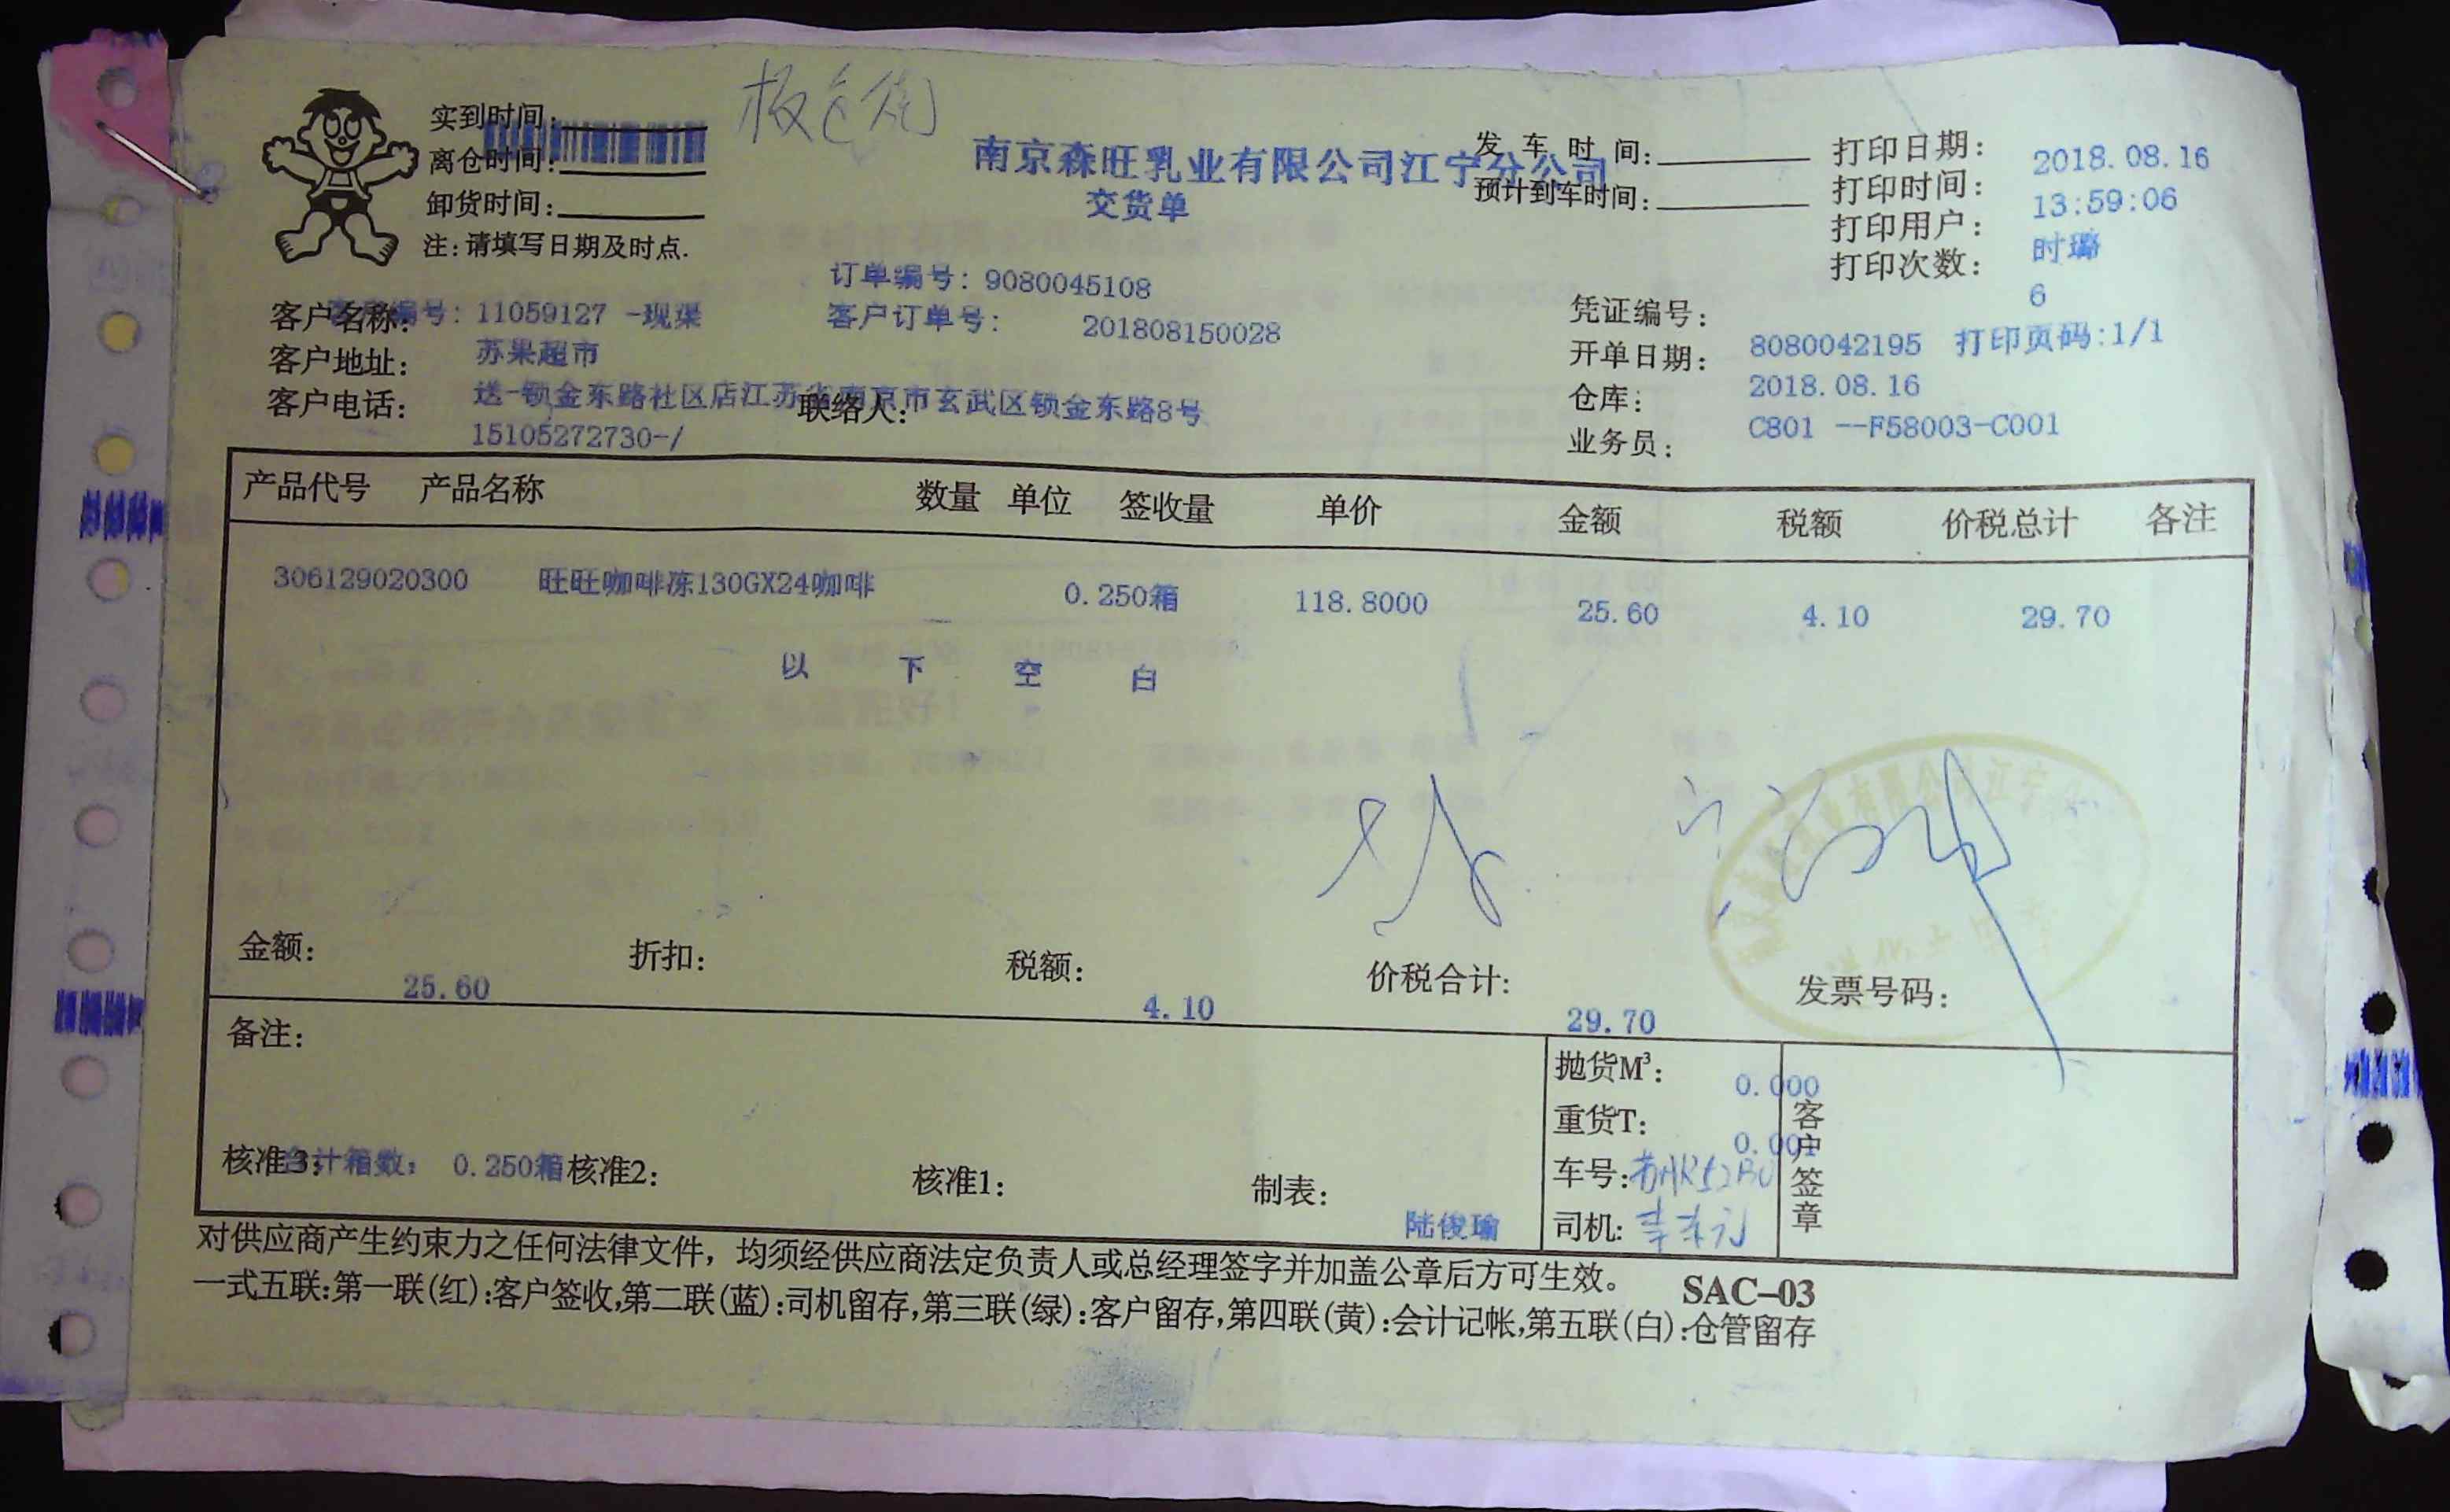 实到时间:
离仓时间:
卸货时间:
注:请填写日期及时点.
南京森旺乳业有限公司江宁分公司
交货单
发 车 时 间:
预计到车时间:
打印日期: 2018.08.16
打印时间: 13:59:06
打印用户: 时璐
打印次数: 6
订单编号: 9080045108
客户订单号: 201808150028
客户编号: 11059127 -现渠
客户名称: 苏果超市
客户地址: 送-锁金东路社区店江苏省南京市玄武区锁金东路8号
客户电话: 15105272730-/
联络人:
凭证编号: 8080042195 打印页码:1/1
开单日期: 2018.08.16
仓库: C801 --F58003-C001
业务员:
产品代号 产品名称 数量 单位 签收量 单价 金额 税额 价税总计 各注
306129020300 旺旺咖啡冻130GX24咖啡 0.250箱 118.8000 25.60 4.10 29.70
以 下 空 白
金额: 25.60 折扣: 税额: 4.10 价税合计: 29.70 发票号码:
备注:
合计箱数: 0.250箱
核准3: 核准2: 核准1: 制表: 陆俊瑜
抛货M³: 0.000
重货T: 0.001
车号:
司机:
客户签章
对供应商产生约束力之任何法律文件，均须经供应商法定负责人或总经理签字并加盖公章后方可生效。 SAC-03
一式五联:第一联(红):客户签收,第二联(蓝):司机留存,第三联(绿):客户留存,第四联(黄):会计记帐,第五联(白):仓管留存